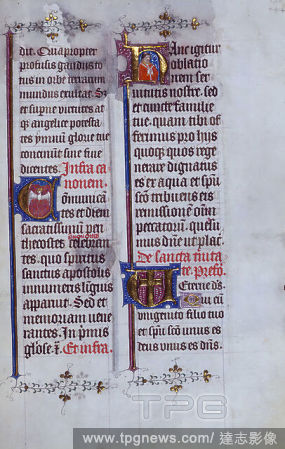 dit. Quapropter
profusis gaudiis to
tus in orbe terrarum
mundus exultat. Sz
et supne virtutes at
qz angelice potesta
tes ymnū glorie tue
concinūt sine fine
dicentes. Infra ca
nonem.
Cōmunican
tes et diem
sacratissimū pen
thecostes celebran
tes. quo spiritus
sanctus apostolis
innumeris linguis
apparuit. Sed et
memoriam vene
rantes. In primis
gloriose
Et infra.
Hanc igitur
oblatio
nem ser
uitutis nostre. sed
et cuncte familie
tue. quam tibi of
ferimus pro hys
quoqz quos rege
nerare dignatus
es ex aqua et spū
scō tribuens eis
remissionē oīm
peccatorū. quesu
mus dñe ut plac.
De sancta trinita
te prefō.
Eterne ds.
Qui cū
unigenito filio tuo
et spū scō unus es
deus unus es dñs.
TPG
www.tpgnews.com/ 達志影像